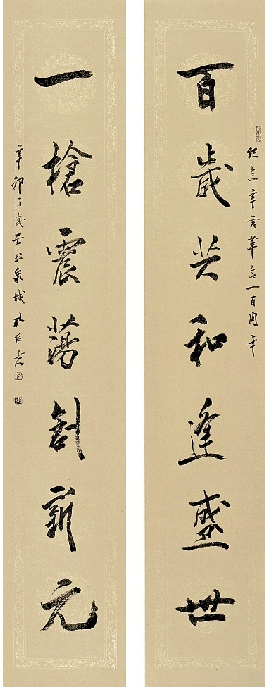 紀念辛亥革命一百周年
百歲共和逢盛世
一槍震蕩創新元
辛卯之歲書於泉城孔